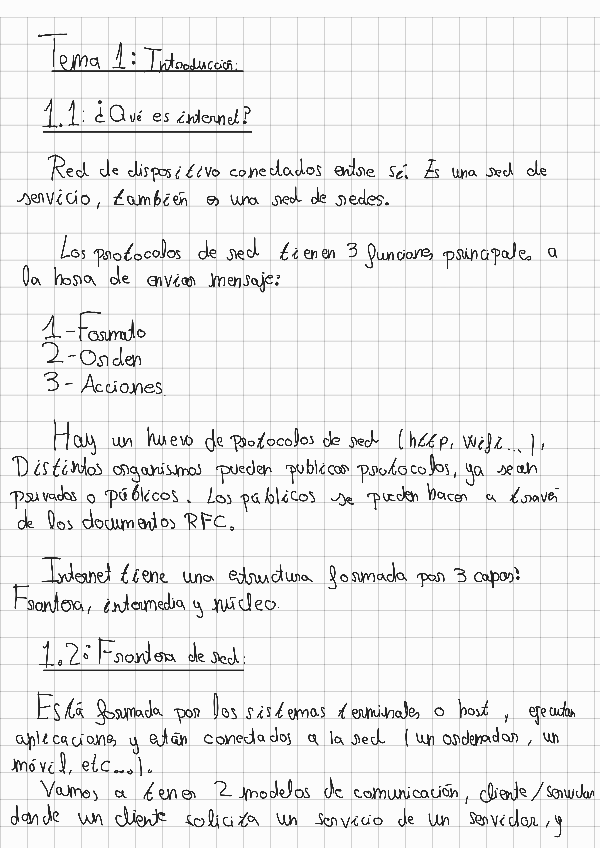 Tema 1: Introducción:
1.1: ¿Qué es internet?
Red de dispositivo conectados entre sí. Es una red de
servicio, también es una red de redes.
Los protocolos de red tienen 3 funciones principales a
la hora de enviar mensaje:
1-Formato
2-Orden
3-Acciones
Hay un huevo de protocolos de red (http, wifi...).
Distintos organismos pueden publicar protocolos, ya sean
privados o públicos. Los públicos se pueden hacer a través
de los documentos RFC.
Internet tiene una estructura formada por 3 capas:
Frontera, intermedia y núcleo.
1.2: Frontera de red:
Está formada por los sistemas terminales o host, ejecutan
aplicaciones y están conectados a la red (un ordenador, un
móvil, etc...).
Vamos a tener 2 modelos de comunicación, cliente/servidor
donde un cliente solicita un servicio de un servidor, y